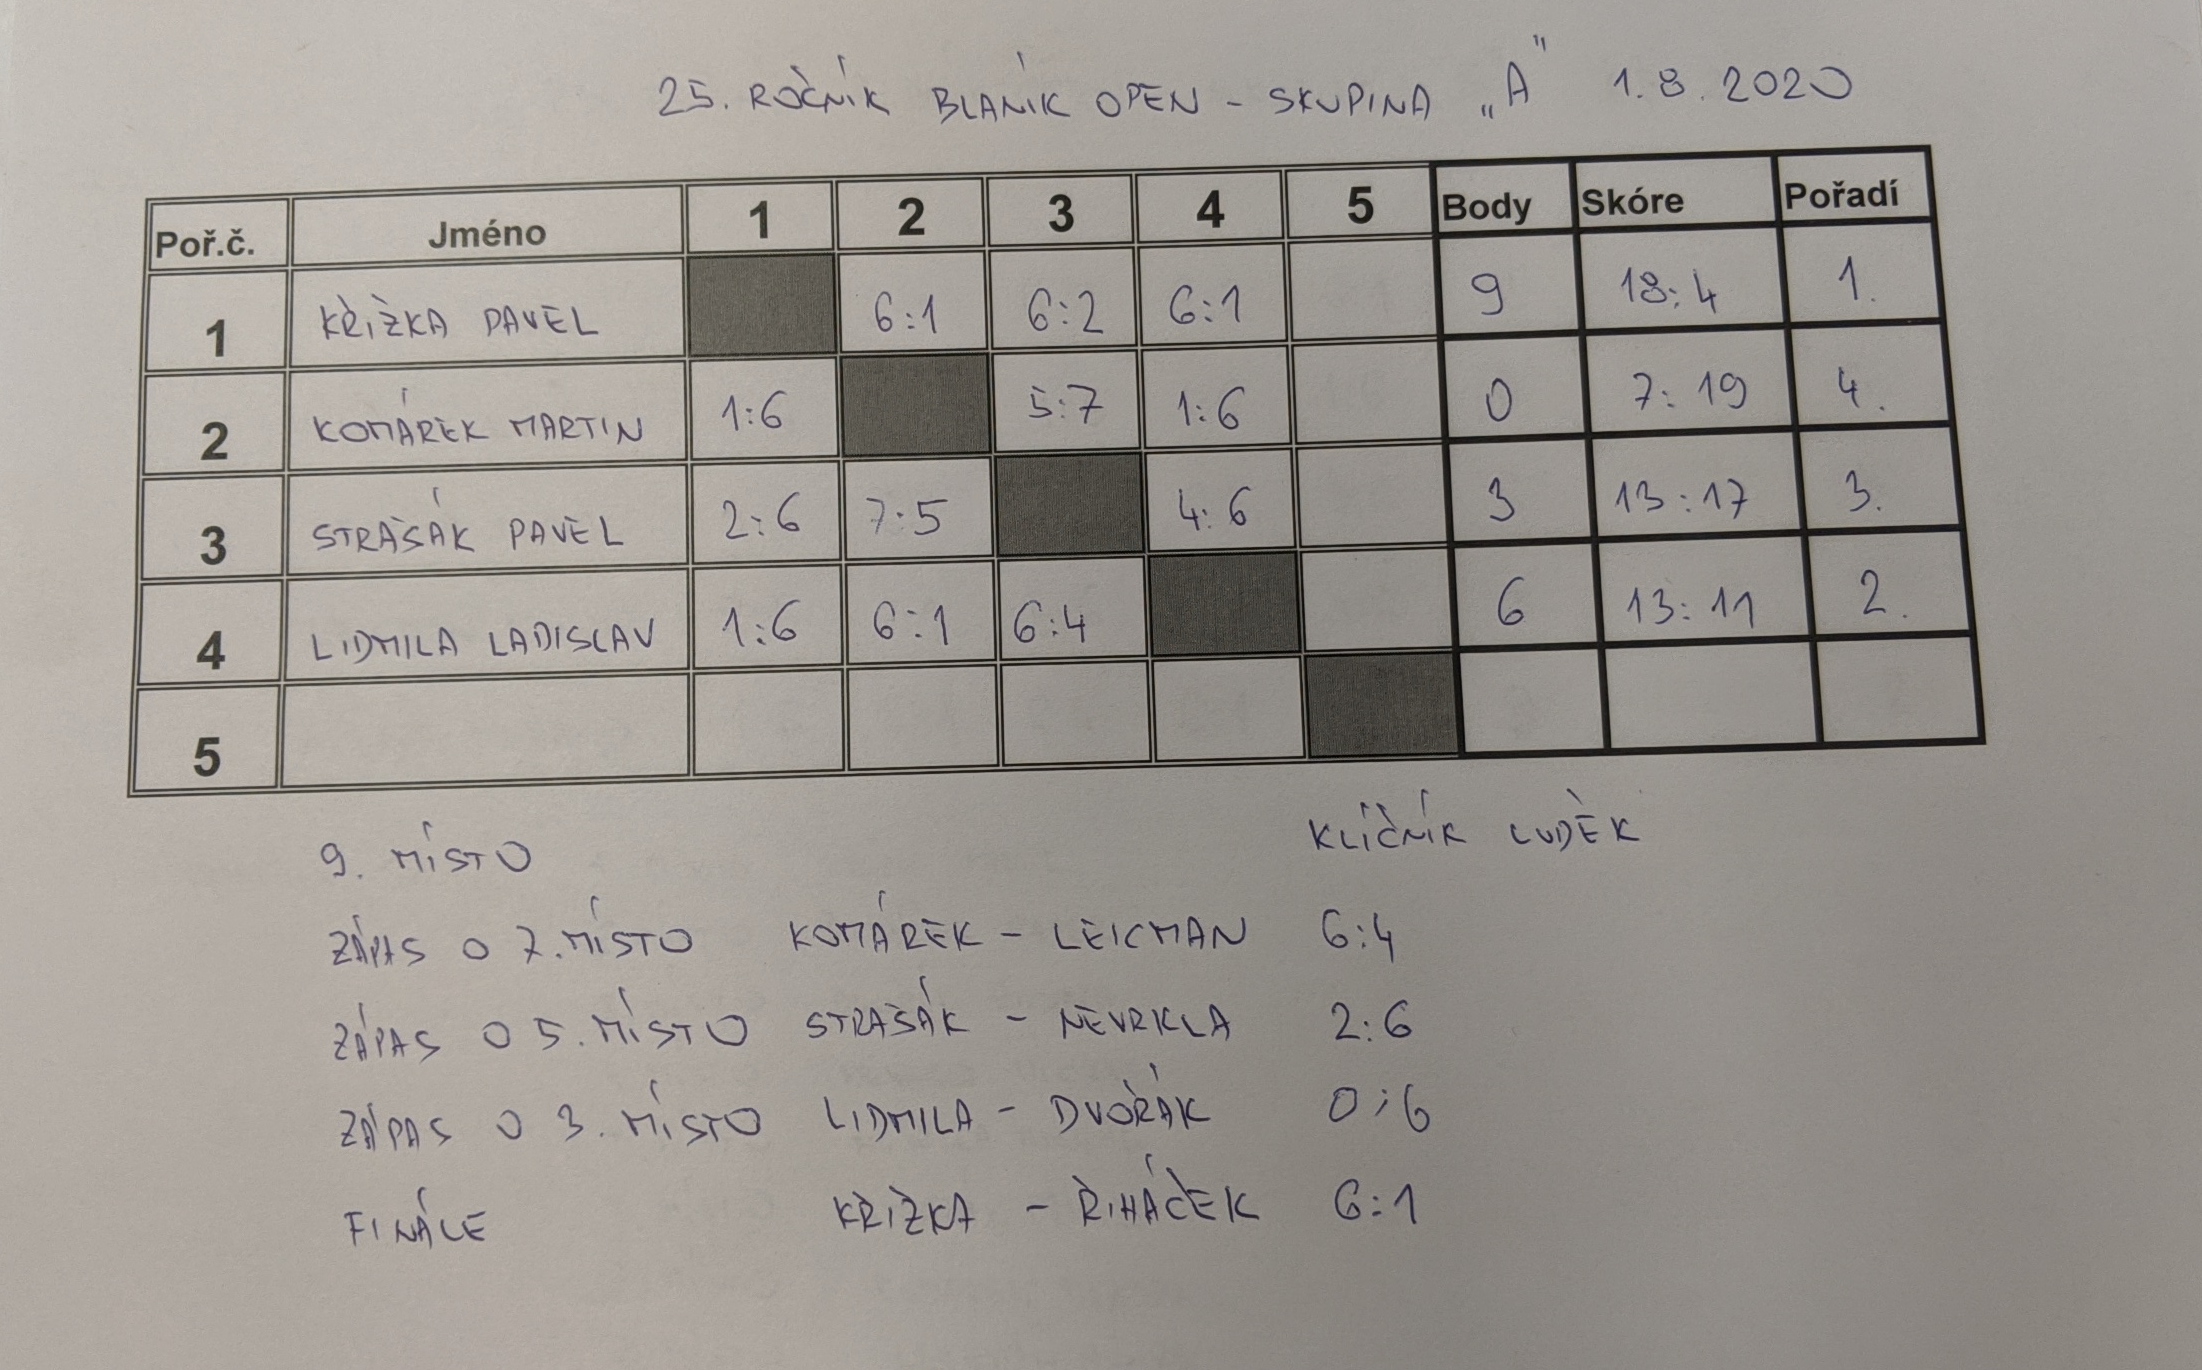 25. ROČNÍK BLANÍK OPEN - SKUPINA „A" 1.8.2020
Poř.č. Jméno 1 2 3 4 5 Body Skóre Pořadí
1 KŘIŽKA PAVEL 6:1 6:2 6:1 9 18:4 1.
2 KOMÁREK MARTIN 1:6 5:7 1:6 0 7:19 4.
3 STRAŠÁK PAVEL 2:6 7:5 4:6 3 13:17 3.
4 LIDMILA LADISLAV 1:6 6:1 6:4 6 13:11 2.
5
9. MÍSTO KLÍČNÍK LUDĚK
ZÁPAS O 7. MÍSTO KOMÁREK - LEICMAN 6:4
ZÁPAS O 5. MÍSTO STRAŠÁK - NEVRKLA 2:6
ZÁPAS O 3. MÍSTO LIDMILA - DVOŘÁK 0:6
FINÁLE KŘIŽKA - ŘIHÁČEK 6:1